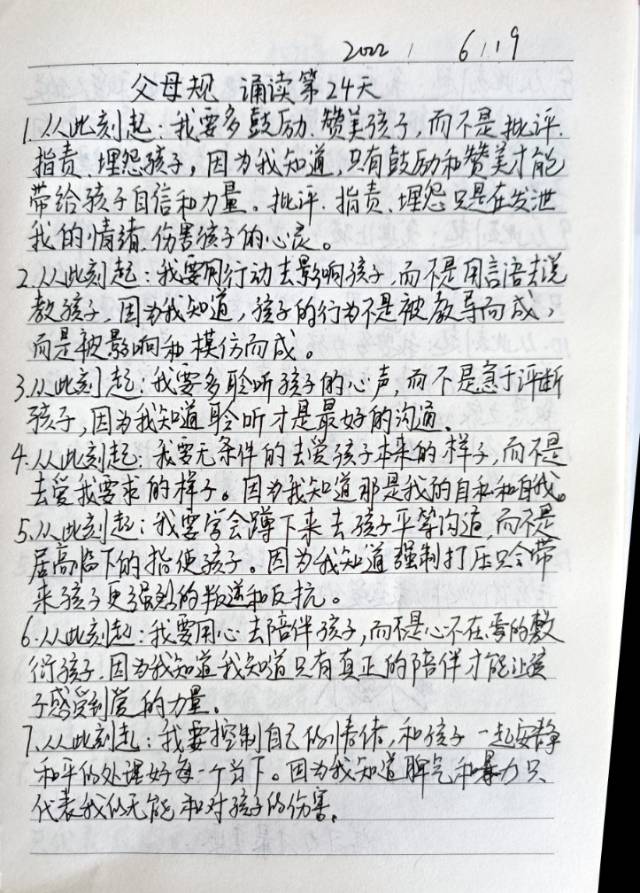 2022 1 6119
父母规 诵读第24天
1.从此刻起:我要多鼓励、赞美孩子,而不是批评.
指责、埋怨孩子,因为我知道,只有鼓励和赞美才能
带给孩子自信和力量。批评.指责、埋怨只是在发泄
我的情绪、伤害孩子的心灵。
2.从此刻起:我要用行动去影响孩子,而不是用言语去说
教孩子,因为我知道,孩子的行为不是被教导而成,
而是被影响和模仿而成。
3.从此刻起:我要多聆听孩子的心声,而不是急于评断
孩子,因为我知道聆听才是最好的沟通。
4.从此刻起:我要无条件的去爱孩子本来的样子,而不是
去爱我要求的样子。因为我知道那是我的自私和自我。
5.从此刻起:我要学会蹲下来去孩子平等沟通,而不是
居高临下的指使孩子。因为我知道强制打压只会带
来孩子更强烈的叛逆和反抗。
6.从此刻起:我要用心去陪伴孩子,而不是心不在焉的敷
衍孩子.因为我知道我知道只有真正的陪伴才能让孩
子感受到爱的力量。
7.从此刻起:我要控制自己的情绪,和孩子一起安静
和平的处理好每一个当下。因为我知道脾气和暴力只
代表我的无能和对孩子的伤害。